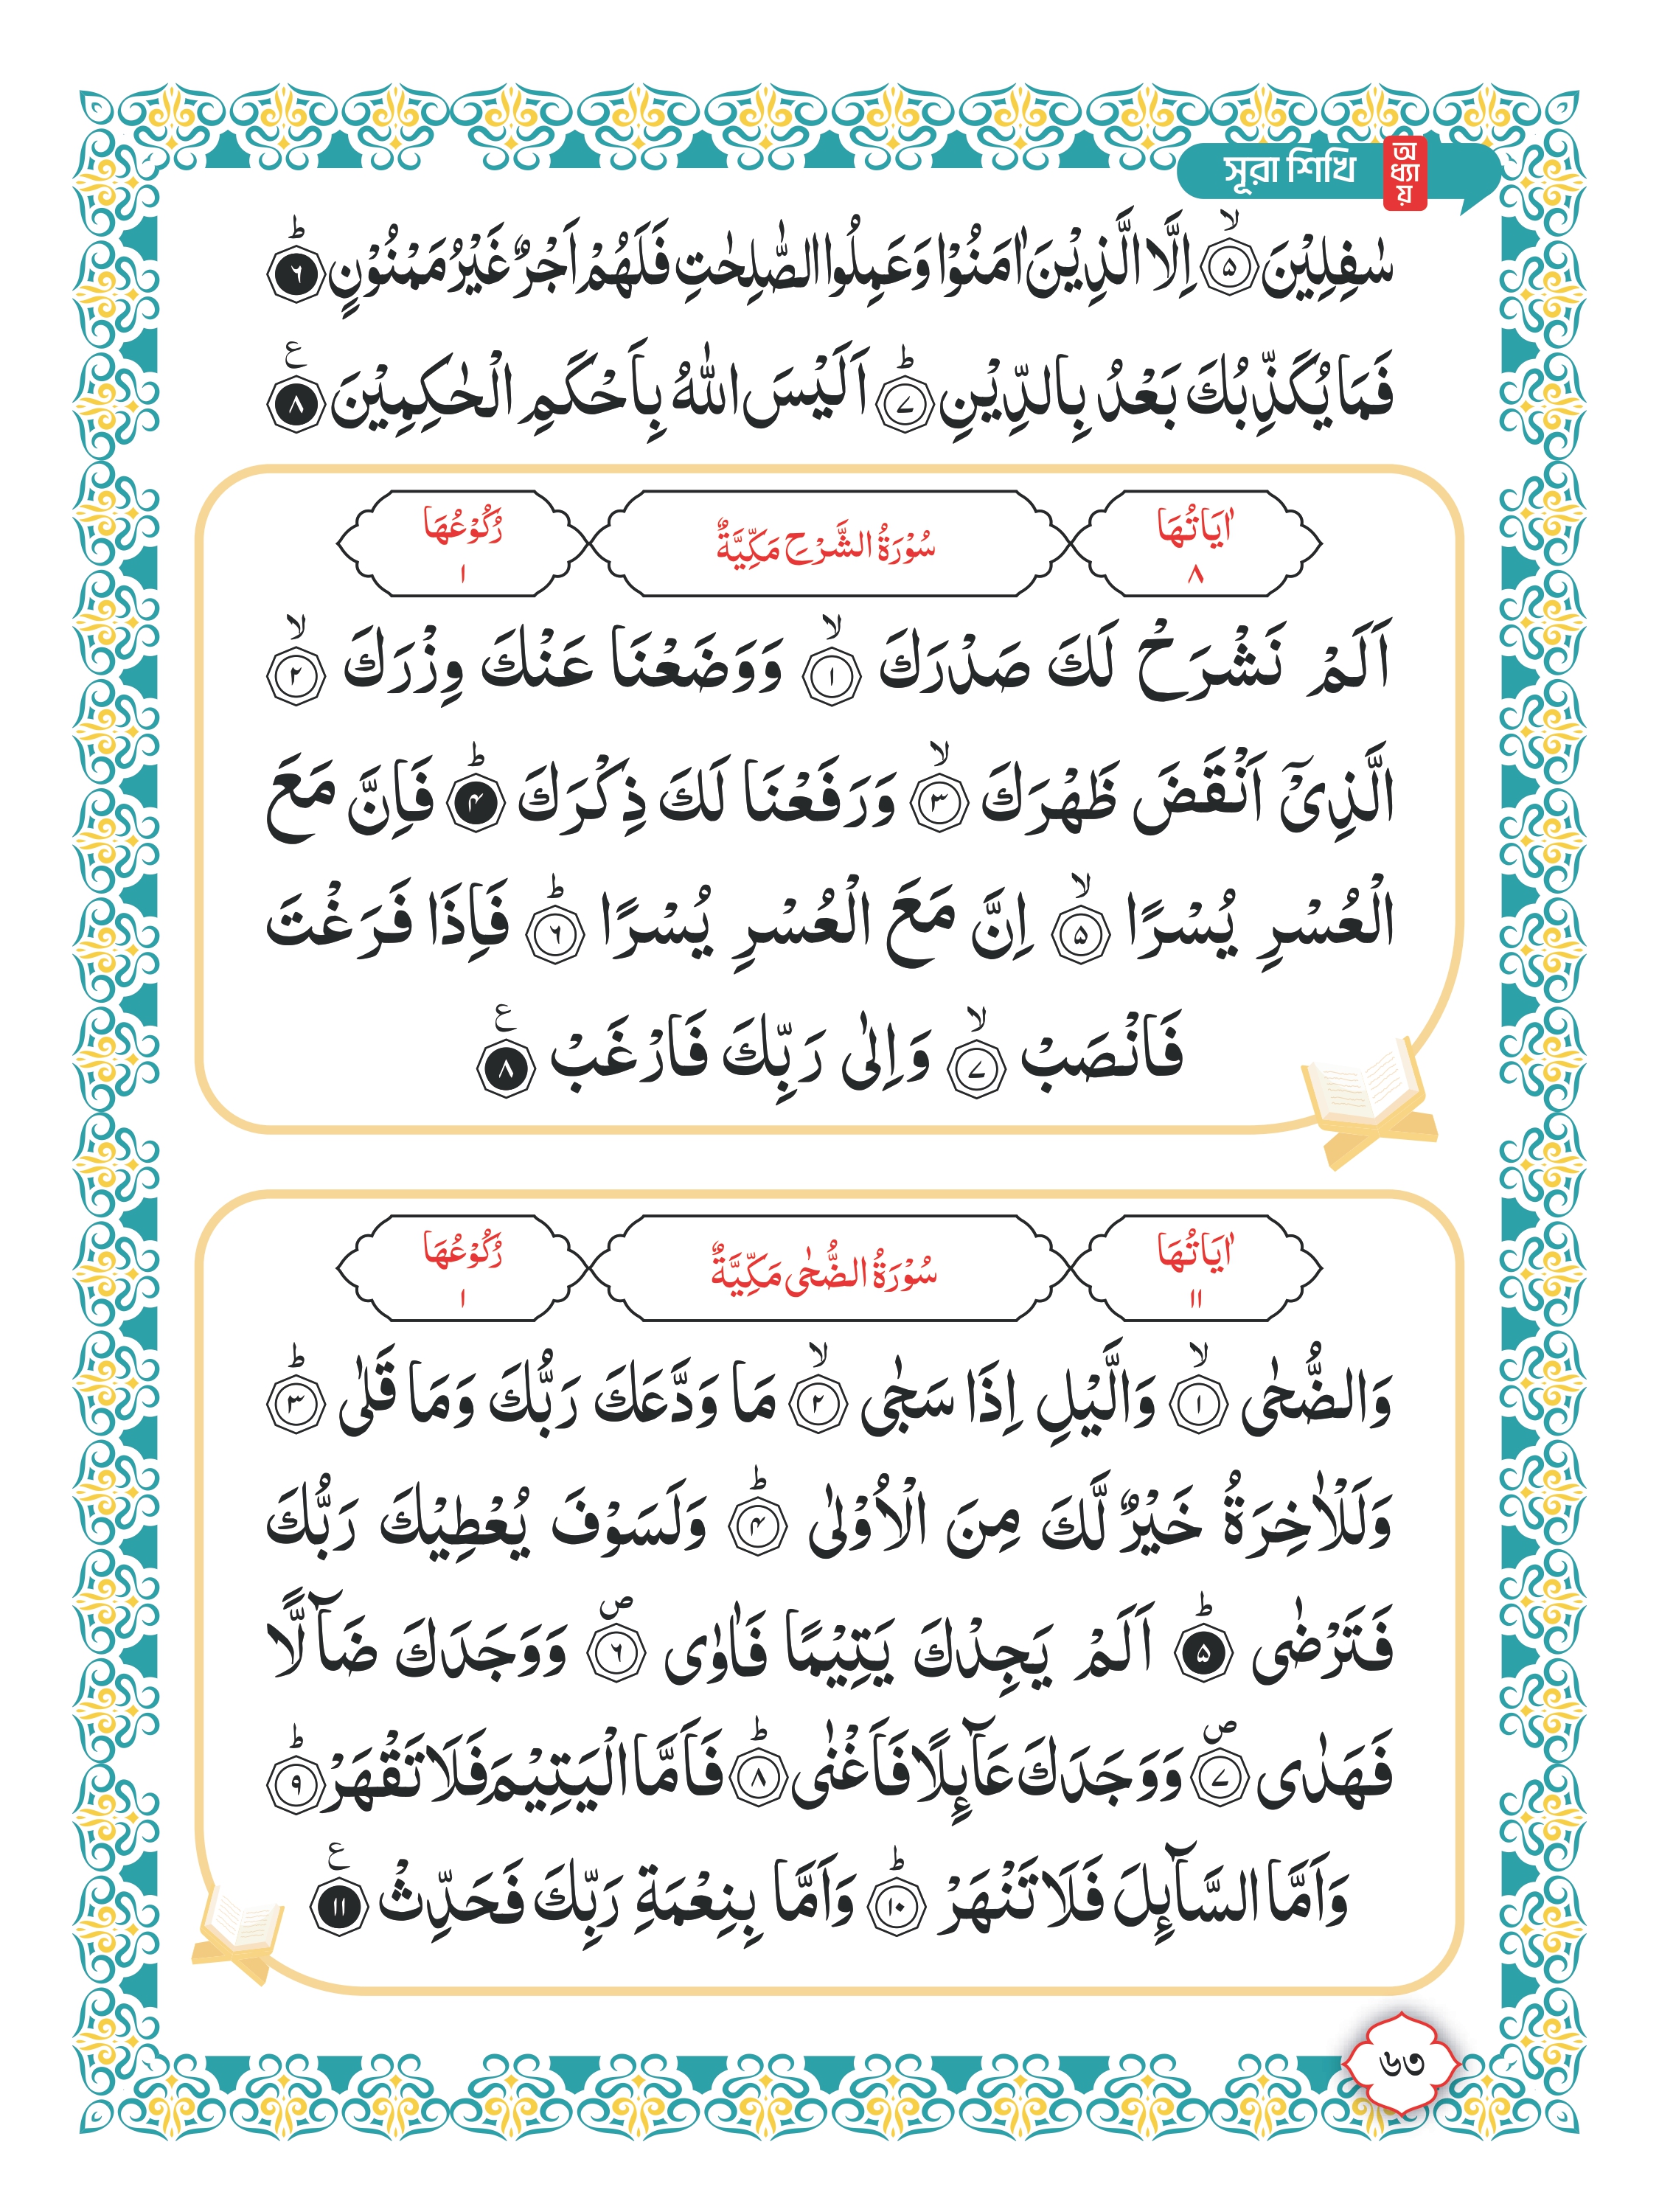 সূরা শিখি অধ্যায়
سٰفِلِيْنَ ۙ﴿۵﴾ اِلَّا الَّذِيْنَ اٰمَنُوْا وَعَمِلُوا الصّٰلِحٰتِ فَلَهُمْ اَجْرٌ غَيْرُ مَمْنُوْنٍ ؕ﴿۶﴾
فَمَا يُكَذِّبُكَ بَعْدُ بِالدِّيْنِ ؕ﴿۷﴾ اَلَيْسَ اللّٰهُ بِاَحْكَمِ الْحٰكِمِيْنَ ﴿۸﴾ ع
اٰيَاتُهَا ۸ سُوْرَةُ الشَّرْحِ مَكِّيَّةٌ رُكُوْعُهَا ۱
اَلَمْ نَشْرَحْ لَكَ صَدْرَكَ ۙ﴿۱﴾ وَوَضَعْنَا عَنْكَ وِزْرَكَ ۙ﴿۲﴾
الَّذِيْۤ اَنْقَضَ ظَهْرَكَ ۙ﴿۳﴾ وَرَفَعْنَا لَكَ ذِكْرَكَ ؕ﴿۴﴾ فَاِنَّ مَعَ
الْعُسْرِ يُسْرًا ۙ﴿۵﴾ اِنَّ مَعَ الْعُسْرِ يُسْرًا ؕ﴿۶﴾ فَاِذَا فَرَغْتَ
فَانْصَبْ ۙ﴿۷﴾ وَاِلٰى رَبِّكَ فَارْغَبْ ﴿۸﴾ ع
اٰيَاتُهَا ۱۱ سُوْرَةُ الضُّحٰى مَكِّيَّةٌ رُكُوْعُهَا ۱
وَالضُّحٰى ۙ﴿۱﴾ وَالَّيْلِ اِذَا سَجٰى ۙ﴿۲﴾ مَا وَدَّعَكَ رَبُّكَ وَمَا قَلٰى ؕ﴿۳﴾
وَلَلْاٰخِرَةُ خَيْرٌ لَّكَ مِنَ الْاُوْلٰى ؕ﴿۴﴾ وَلَسَوْفَ يُعْطِيْكَ رَبُّكَ
فَتَرْضٰى ؕ﴿۵﴾ اَلَمْ يَجِدْكَ يَتِيْمًا فَاٰوٰى ۪﴿۶﴾ وَوَجَدَكَ ضَآلًّا
فَهَدٰى ۪﴿۷﴾ وَوَجَدَكَ عَآئِلًا فَاَغْنٰى ؕ﴿۸﴾ فَاَمَّا الْيَتِيْمَ فَلَا تَقْهَرْ ؕ﴿۹﴾
وَاَمَّا السَّآئِلَ فَلَا تَنْهَرْ ؕ﴿۱۰﴾ وَاَمَّا بِنِعْمَةِ رَبِّكَ فَحَدِّثْ ﴿۱۱﴾ ع
৬৩